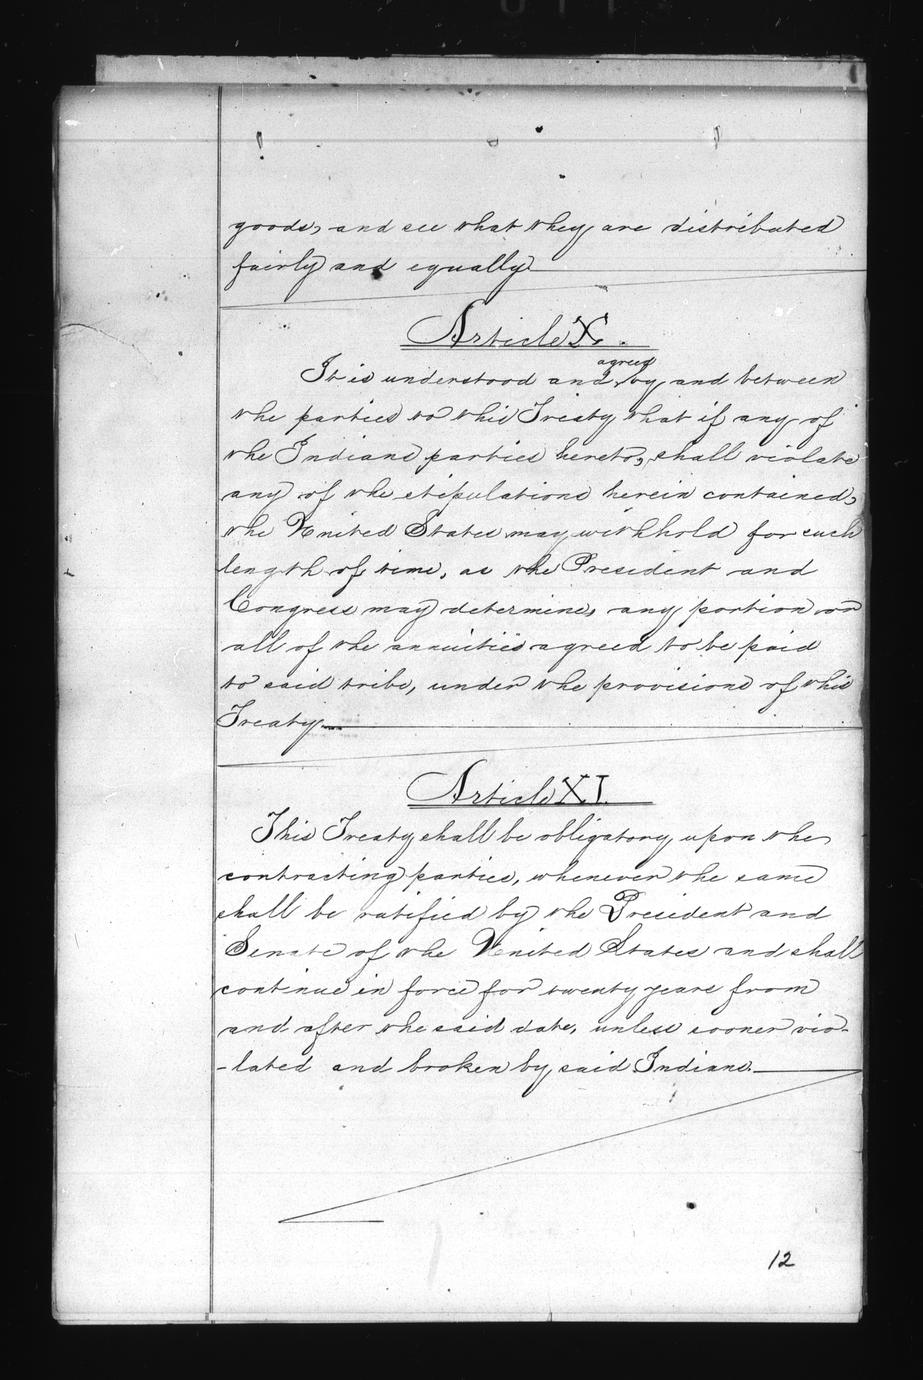 goods, and see that they are distributed
fairly and equally
Article X.
agreed
It is understood and by, and between
the parties to this Treaty that if any of
the Indians parties hereto, shall violate
any of the stipulations herein contained,
the United States may withhold for such
length of time, as the President and
Congress may determine, any portion or
all of the annuities agreed to be paid
to said tribe, under the provisions of this
Treaty.
Article XI.
This Treaty shall be obligatory upon the
contracting parties, whenever the same
shall be ratified by the President and
Senate of the United States and shall
continue in force for twenty years from
and after the said date, unless sooner vio-
-lated and broken by said Indians.
12